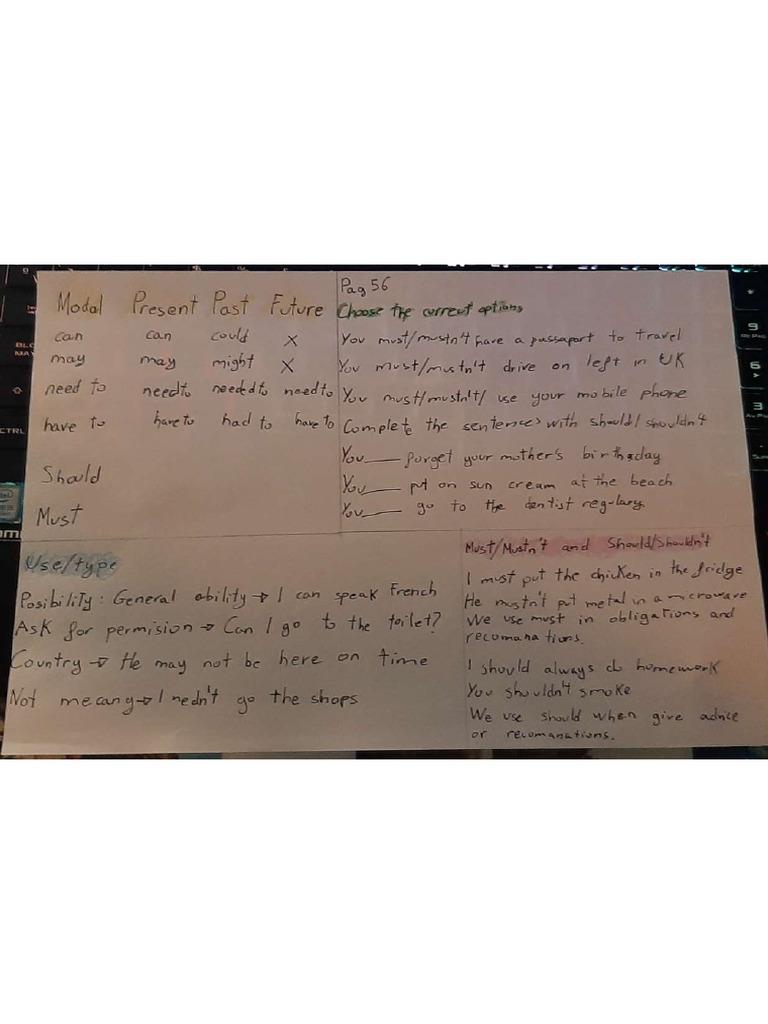 Modal Present Past Future
can can could X
may may might X
need to need to needed to need to
have to have to had to have to
Should
Must
Pag 56
Choose the correct options
You must/mustn't have a passaport to travel
You must/mustn't drive on left in UK
You must/mustn't/ use your mobile phone
Complete the sentences with should/shouldn't
You____ forget your mother's birthday
You____ put on sun cream at the beach
You____ go to the dentist regulary
Use/type
Posibility: General ability → I can speak French
Ask for permision → Can I go to the toilet?
Country → He may not be here on time
Not mecany → I nedn't go the shops
Must/Mustn't and Should/Shouldn't
I must put the chicken in the fridge
He mustn't put metal in a microwave
We use must in obligations and
recomanations.
I should always do homework
You shouldn't smoke
We use should when give advice
or recomanations.